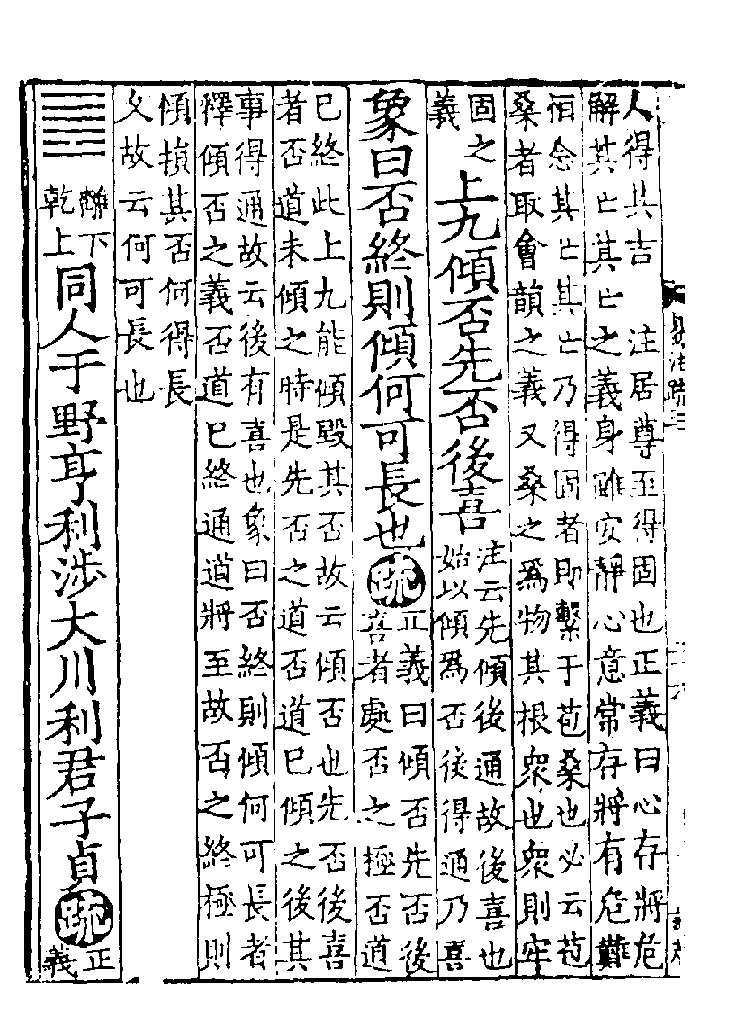 人得其吉　注居尊至得固也正義曰心存將危
解其亡其亡之義身雖安靜心意常存將有危難
恒念其亡其亡乃得固者即繫于苞桑也必云苞
桑者取會韻之義又桑之爲物其根衆也衆則牢
固之
義
上九傾否先否後喜
注云先傾後通故後喜也
始以傾爲否後得通乃喜
象曰否終則傾何可長也疏
正義曰傾否先否後
喜者處否之極否道
已終此上九能傾毀其否故云傾否也先否後喜
者否道未傾之時是先否之道否道已傾之後其
事得通故云後有喜也象曰否終則傾何可長者
釋傾否之義否道已終通道將至故否之終極則
傾損其否何得長
久故云何可長也
䷌
離下
乾上
同人于野亨利涉大川利君子貞疏
正
義